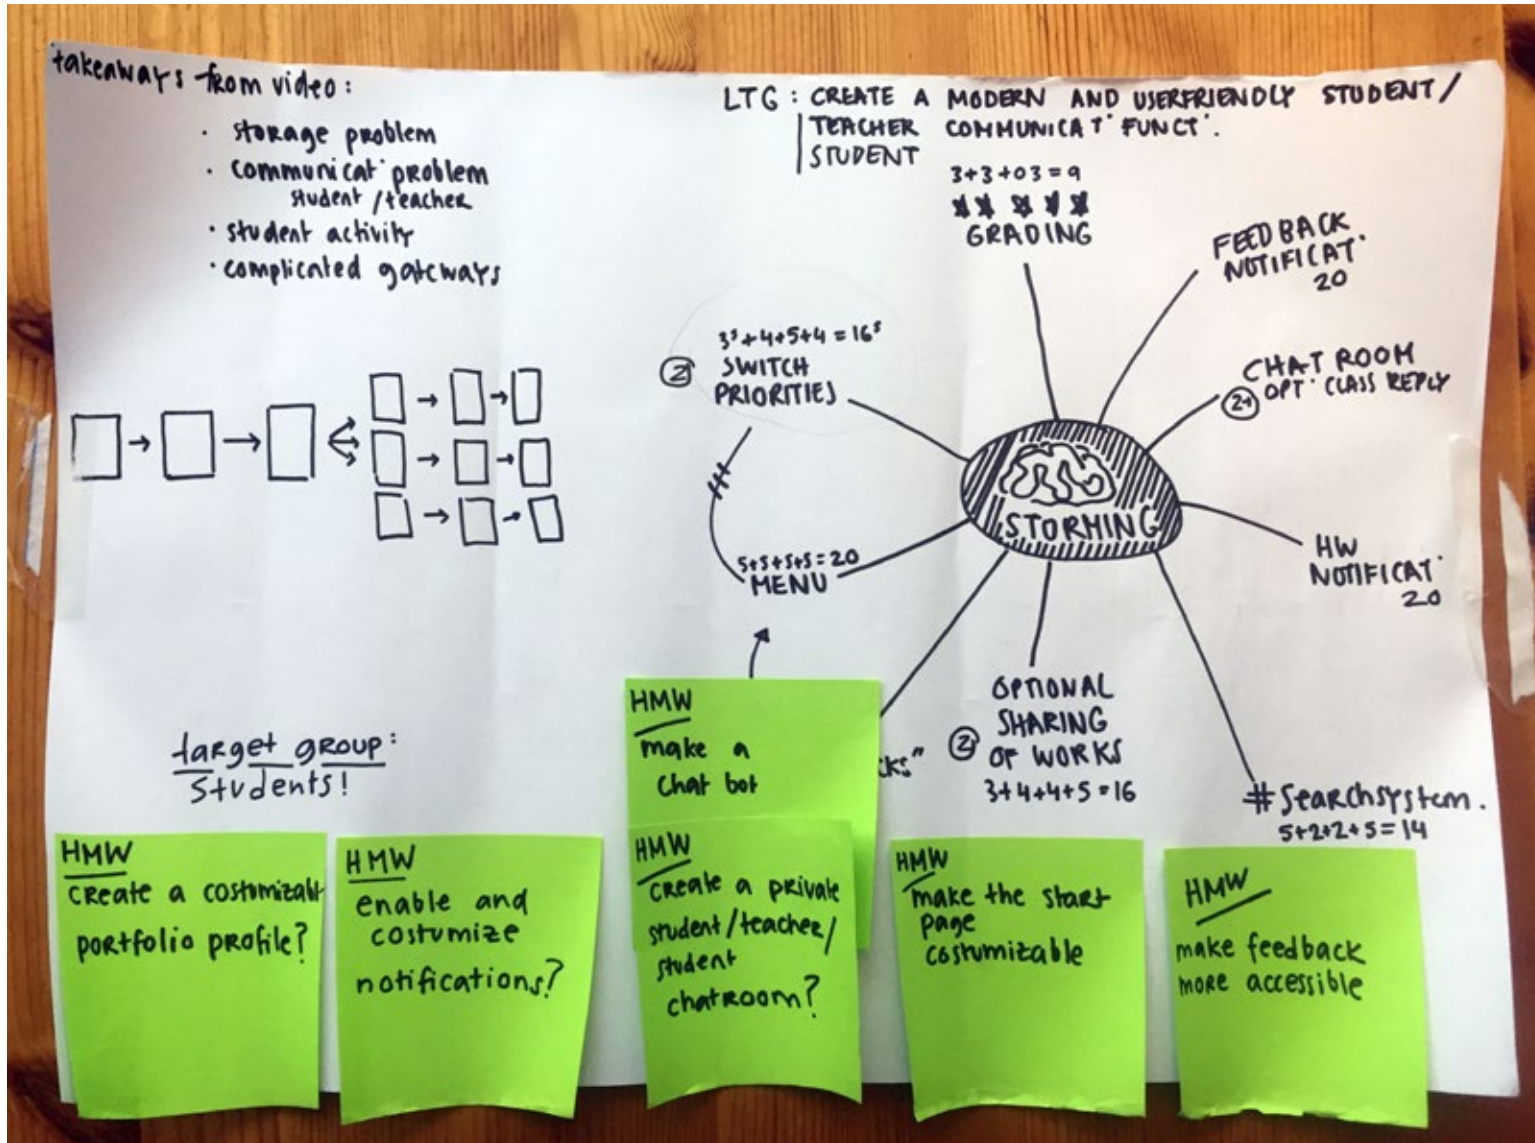 takeaways from video:
· storage problem
· communicat· problem
student/teacher
· student activity
· complicated gateways
LTG: CREATE A MODERN AND USERFRIENDLY STUDENT/
TEACHER COMMUNICAT· FUNCT·.
STUDENT
3+3+03=9
GRADING
FEEDBACK
NOTIFICAT·
20
CHAT ROOM
2+ OPT· CLASS REPLY
HW
NOTIFICAT·
20
#Searchsystem.
5+2+2+5=14
OPTIONAL
SHARING
2 OF WORKS
3+4+4+5=16
5+5+5+5=20
MENU
3⁵+4+5+4=16⁵
2 SWITCH
PRIORITIES
STORMING
target group:
students!
HMW
make a
chat bot
HMW
create a costumizabl
portfolio profile?
HMW
enable and
costumize
notifications?
HMW
create a private
student/teacher/
student
chatroom?
HMW
make the start
page
costumizable
HMW
make feedback
more accessible